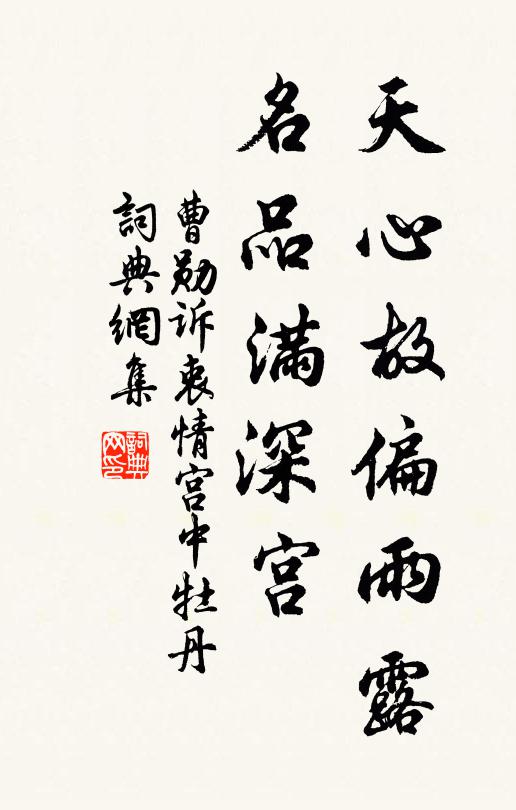 天心故偏雨露
名品满深宫
曹勋诉衷情宫中牡丹
詞典網集
詞典
网印